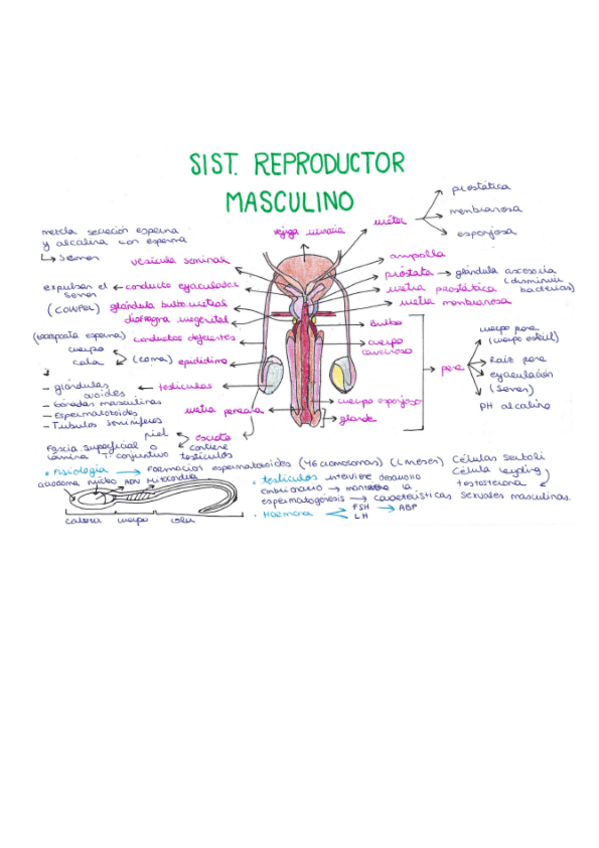 SIST. REPRODUCTOR
MASCULINO
mezcla secreción esperma
y alcalina con esperma
↳ semen
vesícula seminal
expulsan el semen ← conducto eyaculador
(COWPER) glándula bulbouretral
diafragma urogenital
(transporta esperma) conductos deferentes
cuerpo
cola
(coma) epidídimo
- glándulas ovoides
- Gónadas masculinas
- Espermatozoides
- Tubulos seminíferos
← testículos
uretra peneala
piel
fascia superficial o
lámina
escroto
contiene testículos
conjuntivo
vejiga urinaria
uréter
prostática
membranosa
esponjosa
ampolla
próstata → glándula accesoria
(disminuir bacterias)
uretra prostática
uretra membranosa
Bulbo
cuerpo cavernoso
cuerpo esponjoso
glande
pene
cuerpo pene
(cuerpo eréctil)
Raiz pene
eyaculación
(semen)
PH alcalino
• Fisiología → Formación espermatozoides (46 cromosomas) (2 meses)
acrosoma núcleo ADN mitocondria
cabeza cuerpo cola
• testículos interviene desarrollo
embrionario → mantiene la
espermatogénesis → características sexuales masculinas.
Células Sertoli
Célula Leydig
testosterona
• Hormona
FSH → ABP
LH